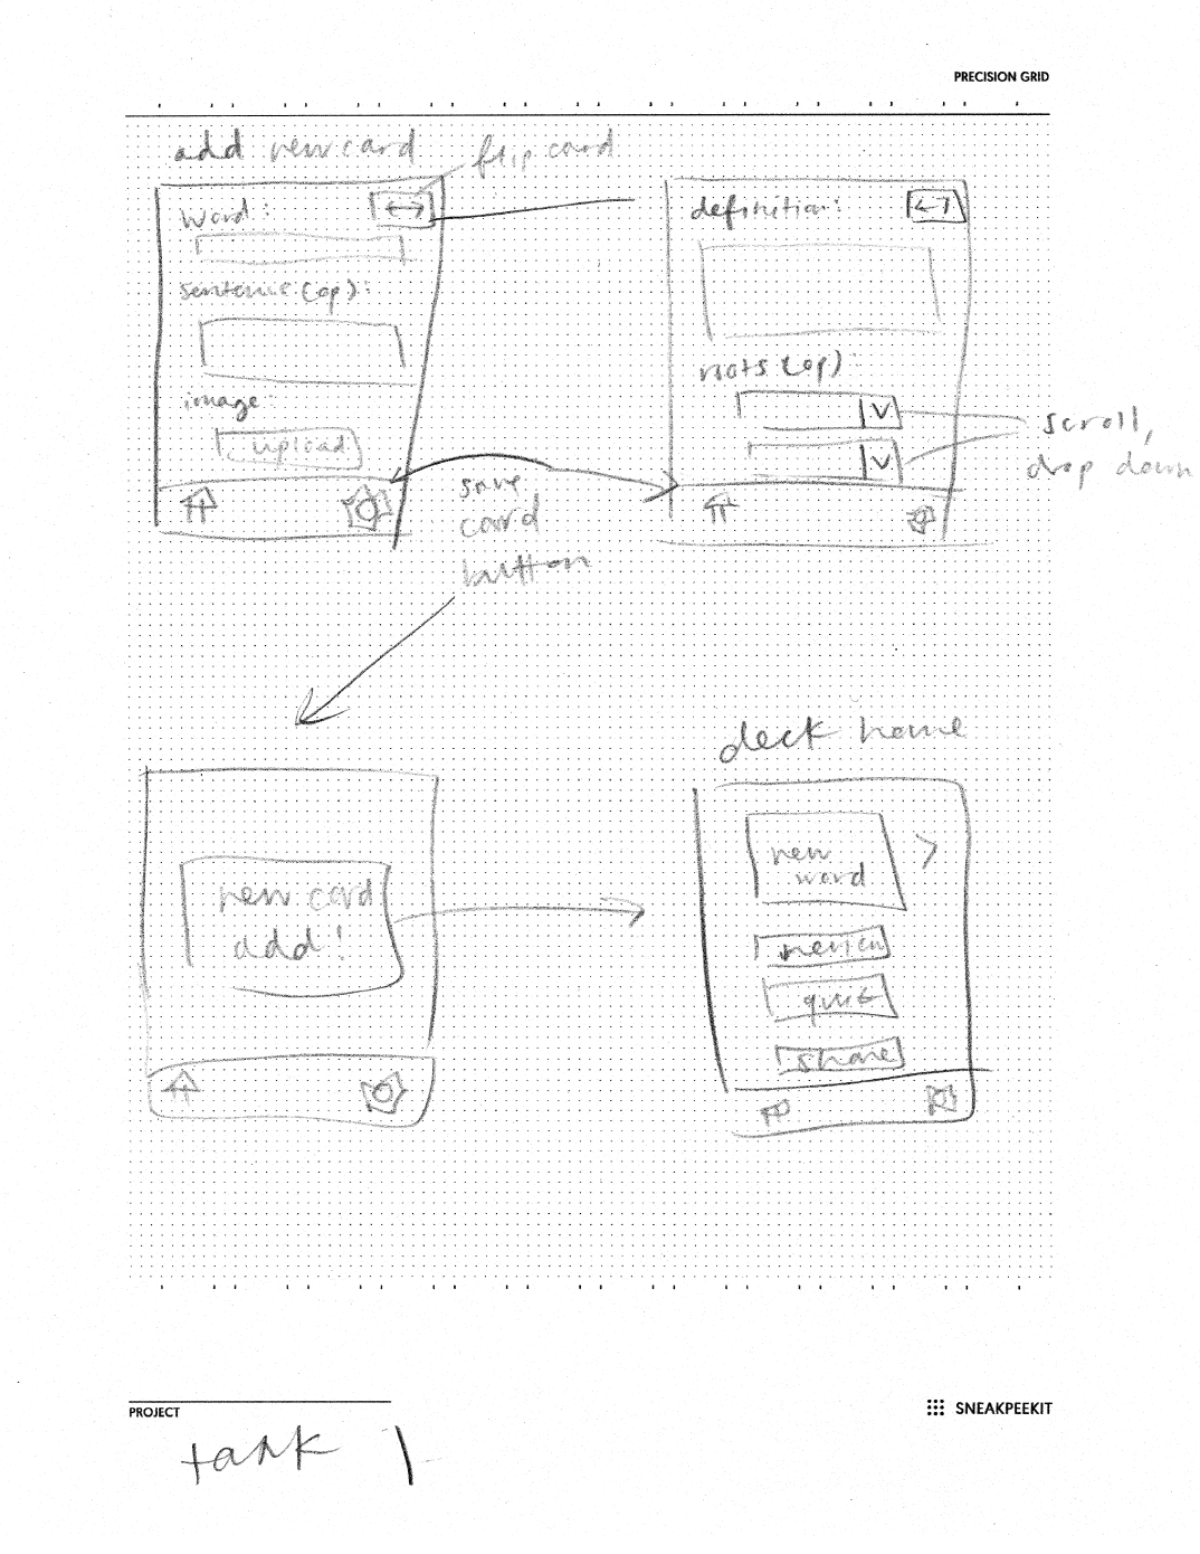 PRECISION GRID
add new card
flip card
Word:
sentence (op):
image:
upload
definition:
roots (op):
scroll,
drop down
save
card
button
new card
add!
deck home
new
word
review
quiz
share
PROJECT
SNEAKPEEKIT
task 1